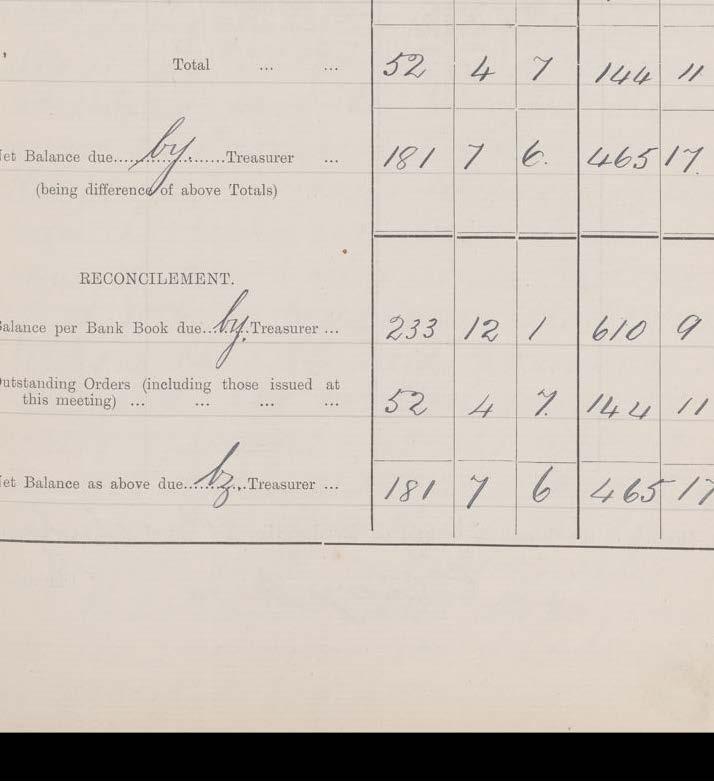 Total ... ... 52 4 7 144 11
et Balance due......by.......Treasurer ... 181 7 6. 465 17.
(being difference of above Totals)
RECONCILEMENT.
alance per Bank Book due...by.Treasurer ... 233 12 1 610 9
utstanding Orders (including those issued at
this meeting) ... ... ... ... 52 4 7. 144 11
et Balance as above due...by...Treasurer ... 181 7 6 465 17